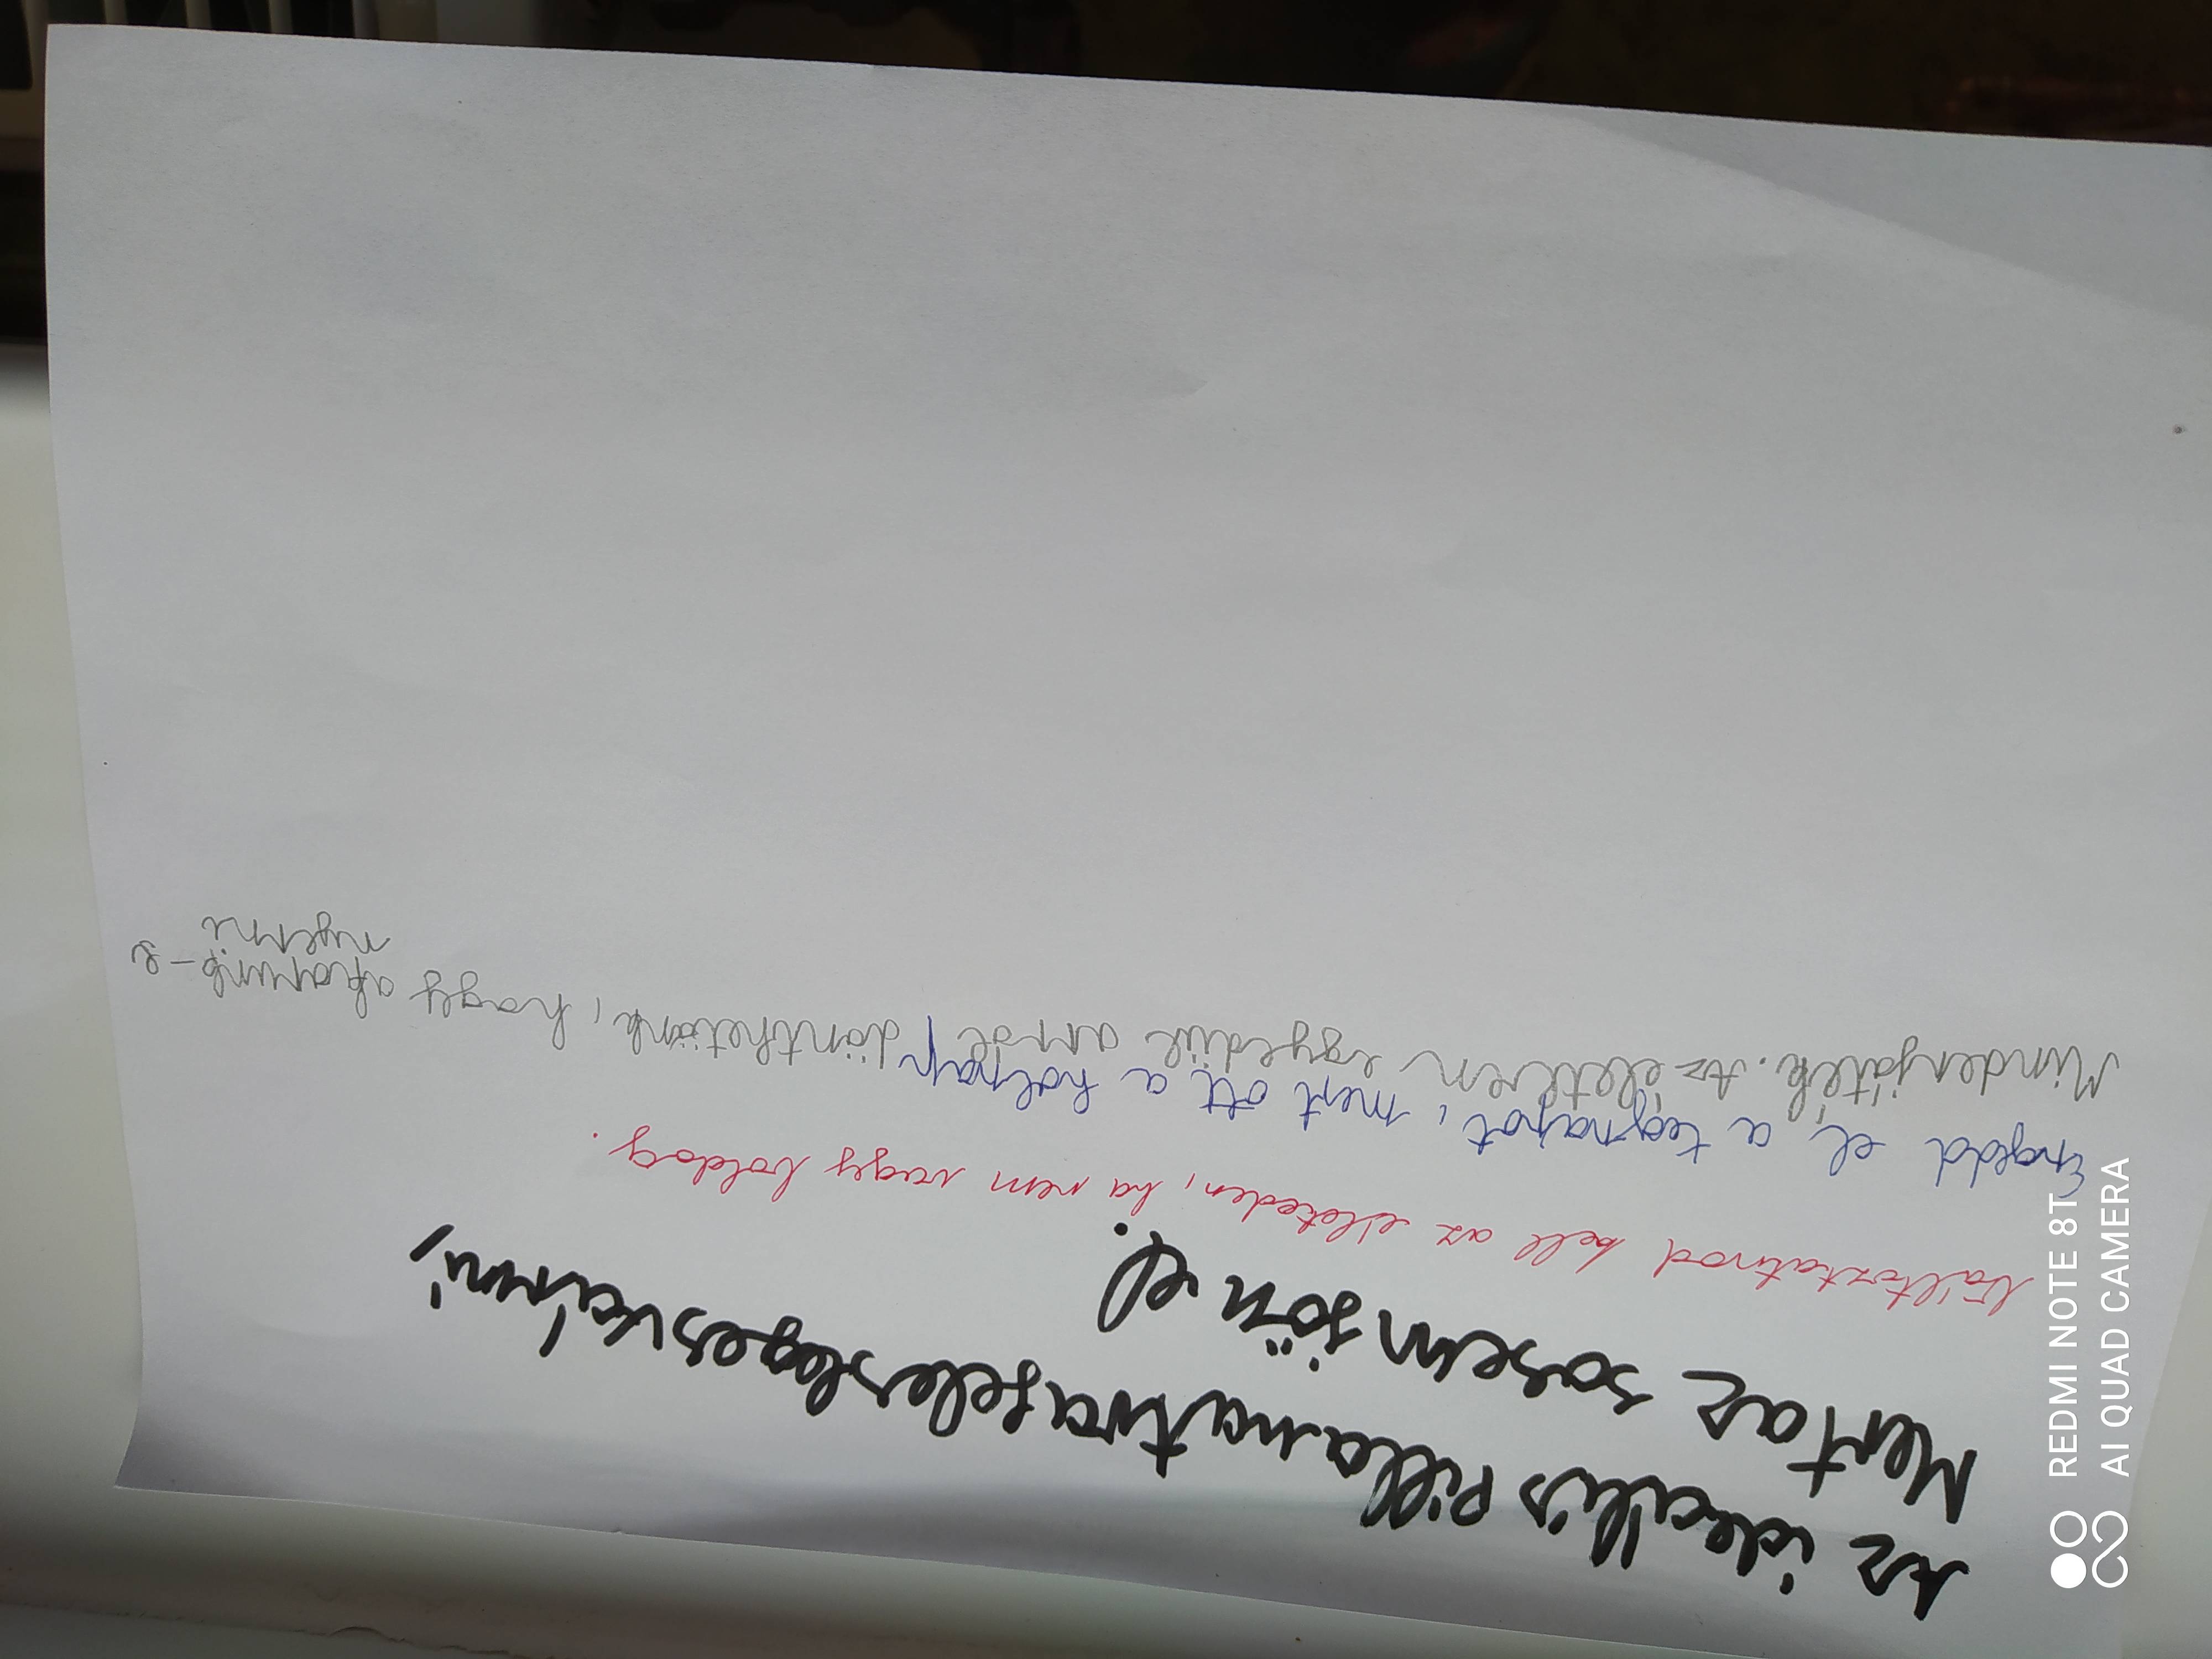 Az ideális pillanatra felesleges várni,
Mert az sosem jön el.
Változtatnod kell az életeden, ha nem vagy boldog.
Engedd el a tegnapot, mert ott a holnap!
Minden játék. Az életben egyedül arról dönthetünk, hogy akarunk-e
nyerni
REDMI NOTE 8T
AI QUAD CAMERA